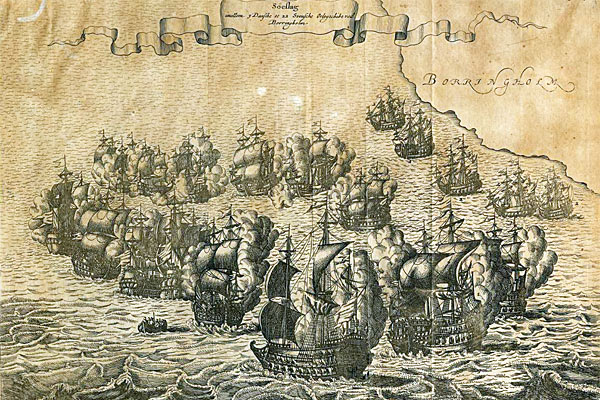 Söeslag
imellem 9 Danſche oc 22 Svenſche Orlogſchibe ved
Borringholm.
BORRINGHOLM